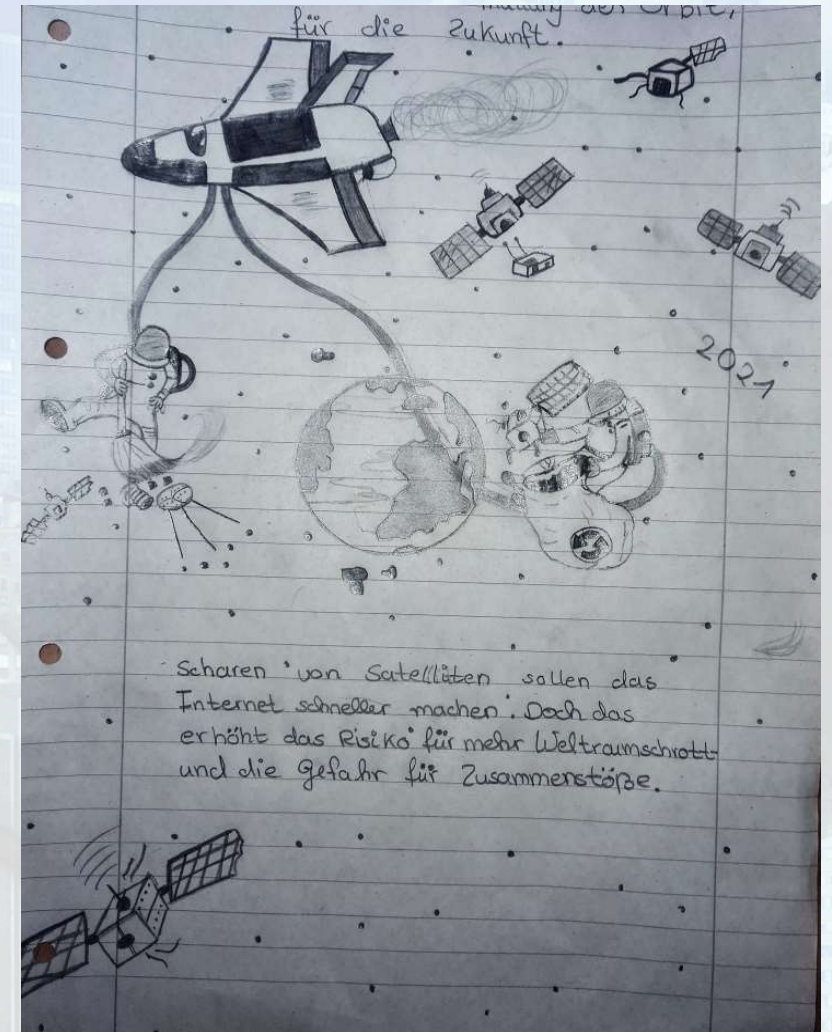 des Orbit,
für die Zukunft.
2021
Scharen von Satelliten sollen das
Internet schneller machen. Doch das
erhöht das Risiko für mehr Weltraumschrott
und die Gefahr für Zusammenstöße.